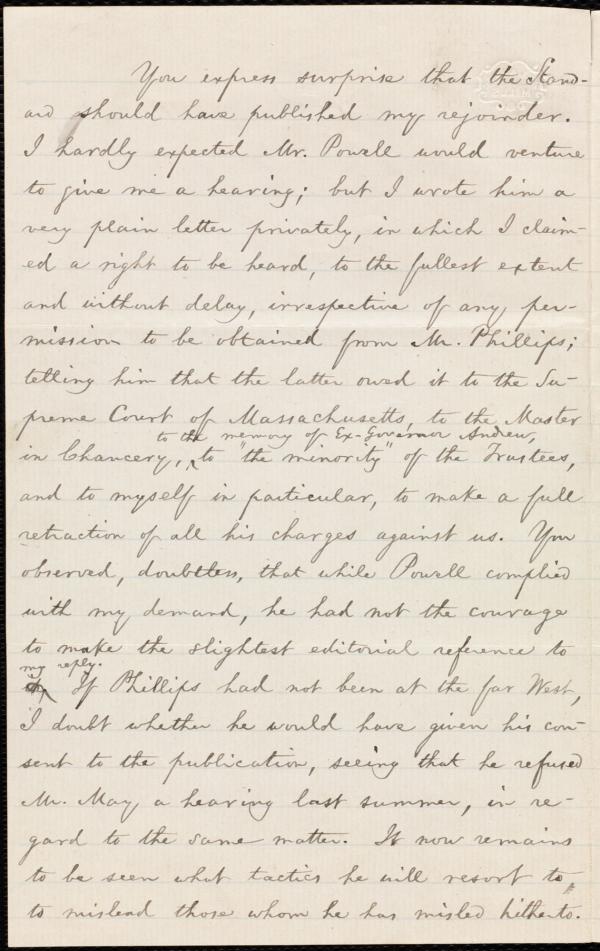 You express surprise that the Stand-
ard should have published my rejoinder.
I hardly expected Mr. Powell would venture
to give me a hearing; but I wrote him a
very plain letter privately, in which I claim-
ed a right to be heard, to the fullest extent
and without delay, irrespective of any per-
mission to be obtained from Mr. Phillips;
telling him that the latter owed it to the Su-
preme Court of Massachusetts, to the Master
to the memory of Ex-Governor Andrew,
in Chancery, to "the minority" of the Trustees,
and to myself in particular, to make a full
retraction of all his charges against us. You
observed, doubtless, that while Powell complied
with my demand, he had not the courage
to make the slightest editorial reference to
my reply.
If Phillips had not been at the far West,
I doubt whether he would have given his con-
sent to the publication, seeing that he refused
Mr. May a hearing last summer, in re-
gard to the same matter. It now remains
to be seen what tactics he will resort to
to mislead those whom he has misled hitherto.